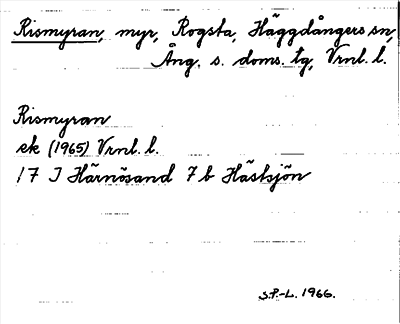 Rismyran, myr, Rogsta, Häggdångers sn,
Ång. s. doms. tg, Vrnl. l.
Rismyran
ek (1965) Vrnl. l.
17 J Härnösand 7 b Hästsjön
S.P.-L. 1966.